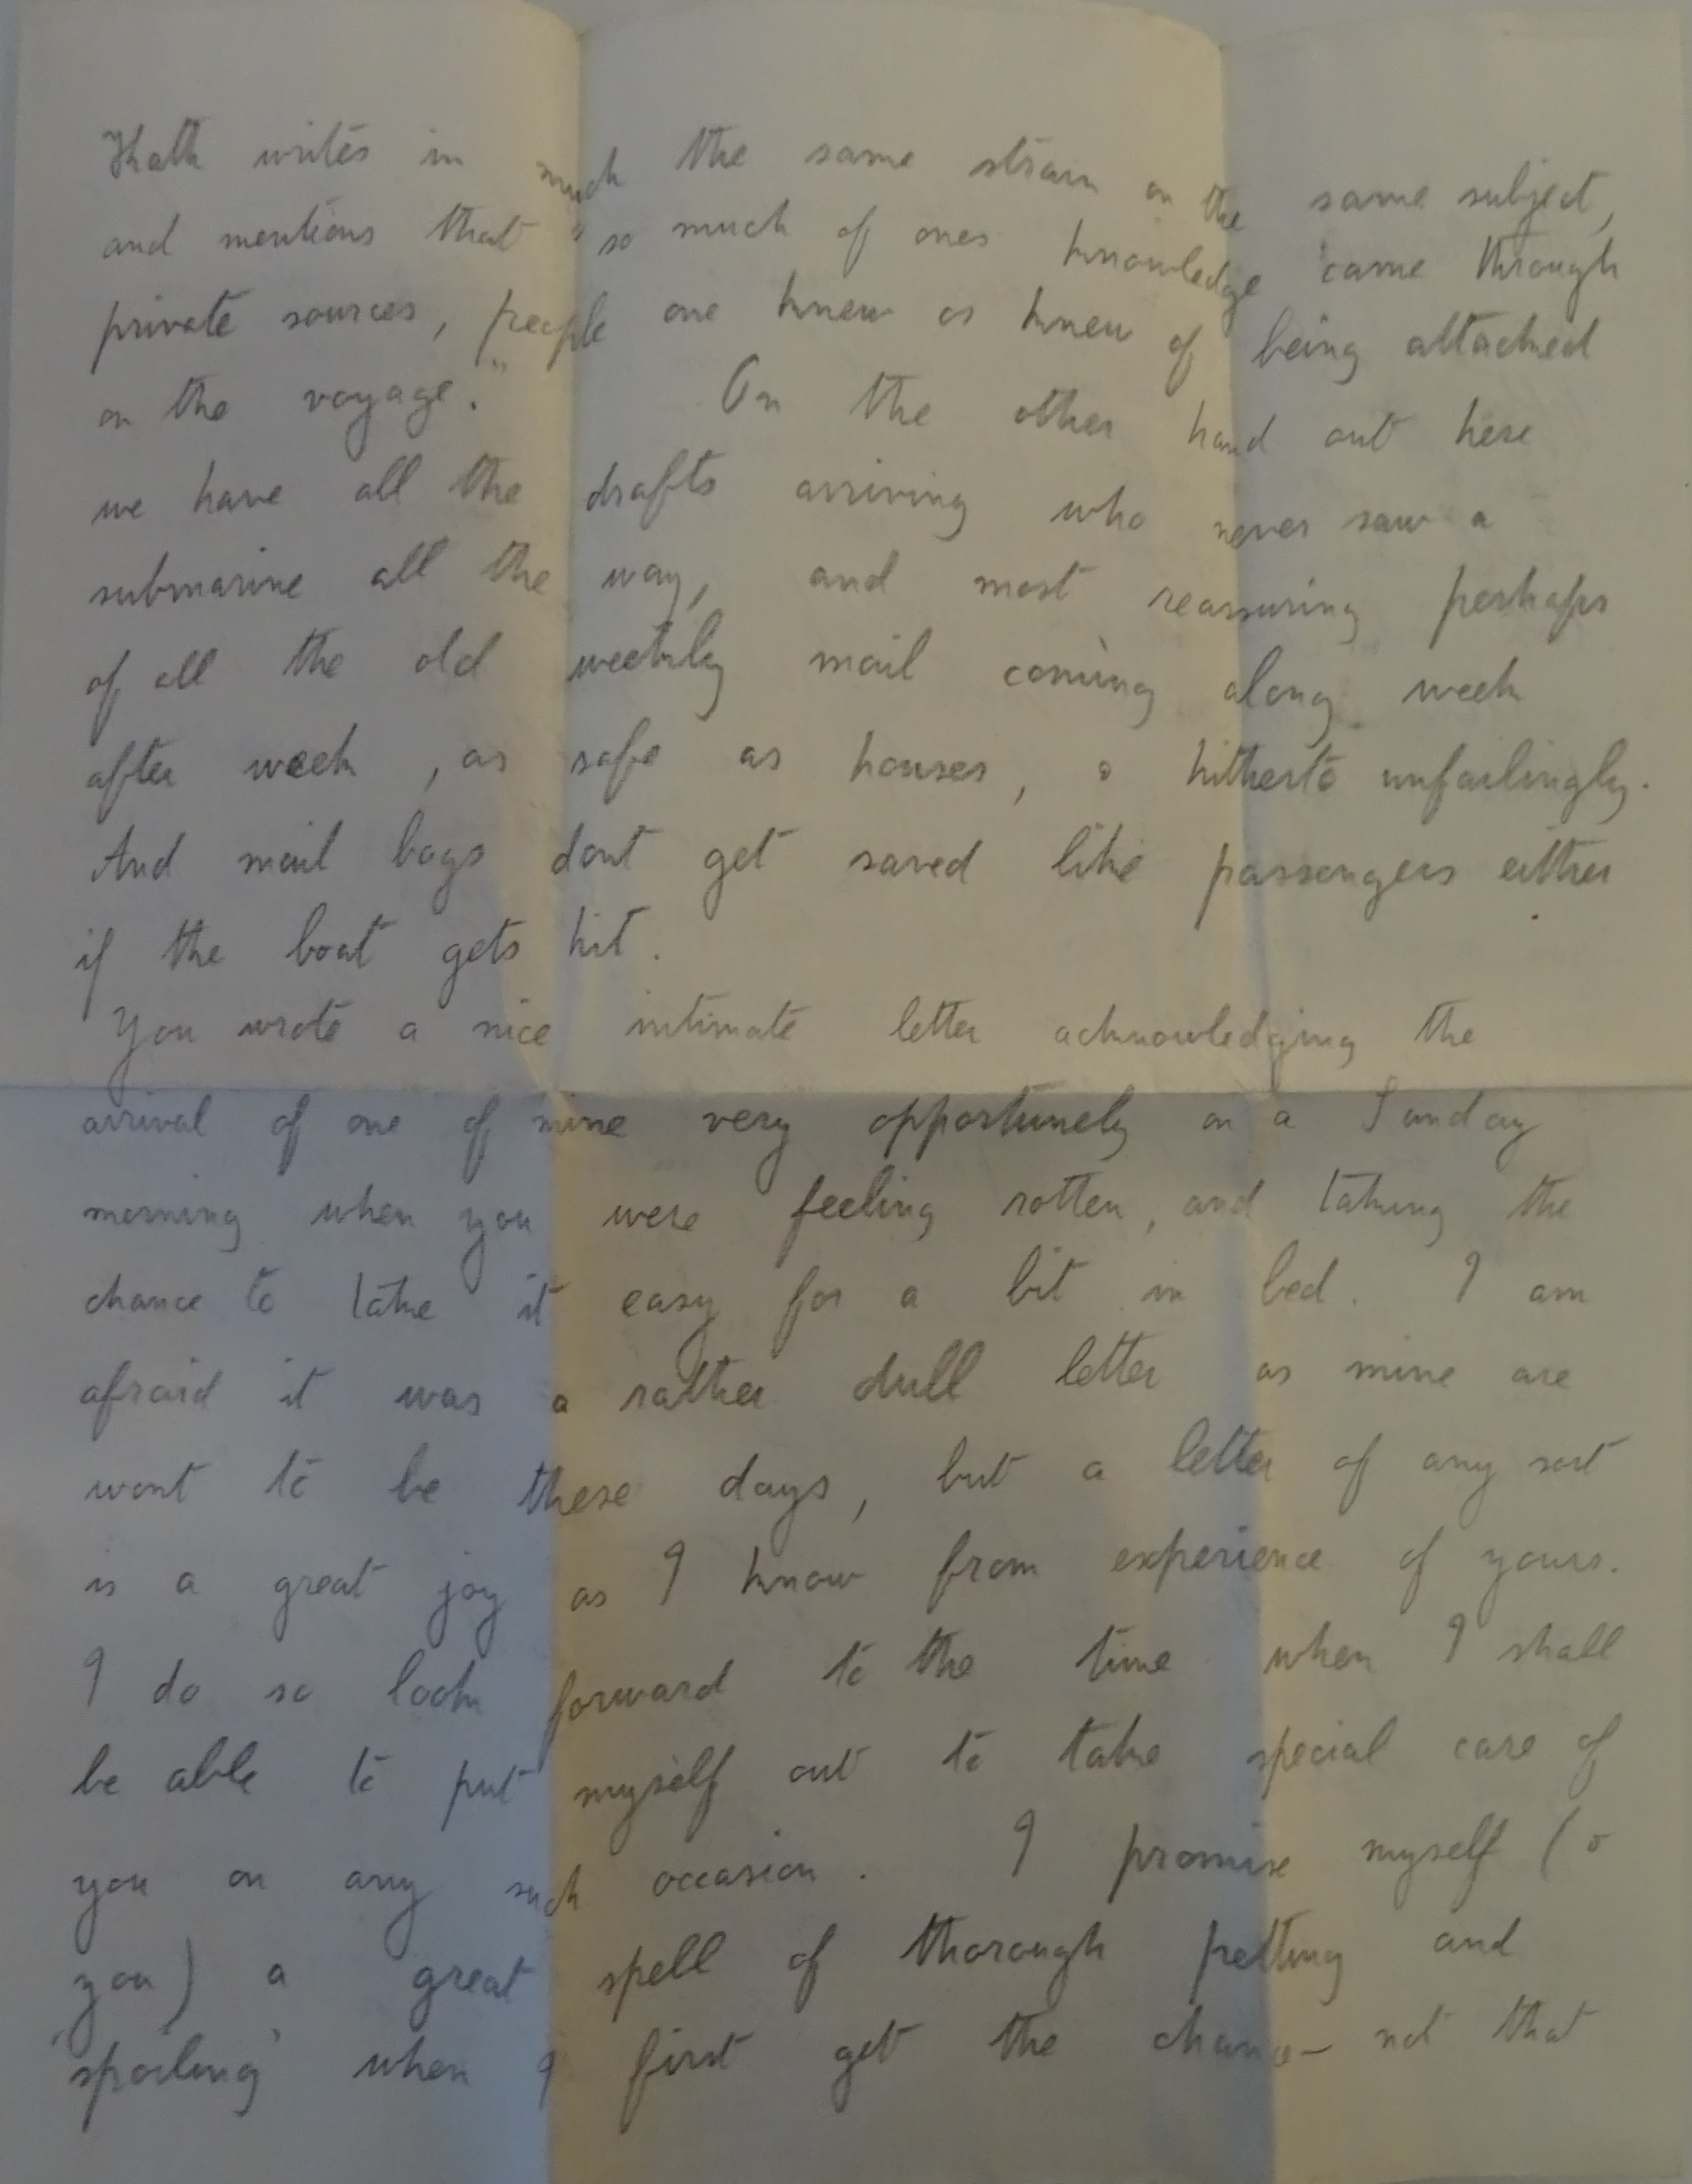 Kath writes in much the same strain on the same subject,
and mentions that "so much of ones knowledge came through
private sources, people one knew or knew of being attacked
on the voyage." On the other hand out here
we have all the drafts arriving who never saw a
submarine all the way, and most reassuring perhaps
of all the old weekly mail coming along week
after week, as safe as houses, & hitherto unfailingly.
And mail bags dont get saved like passengers either
if the boat gets hit.
You wrote a nice intimate letter acknowledging the
arrival of one of mine very opportunely on a Sunday
morning when you were feeling rotten, and taking the
chance to take it easy for a bit in bed. I am
afraid it was a rather dull letter as mine are
wont to be these days, but a letter of any sort
is a great joy as I know from experience of yours.
I do so look forward to the time when I shall
be able to put myself out to take special care of
you on any such occasion. I promise myself (&
you) a great spell of thorough petting and
'spoiling' when I first get the chance – not that